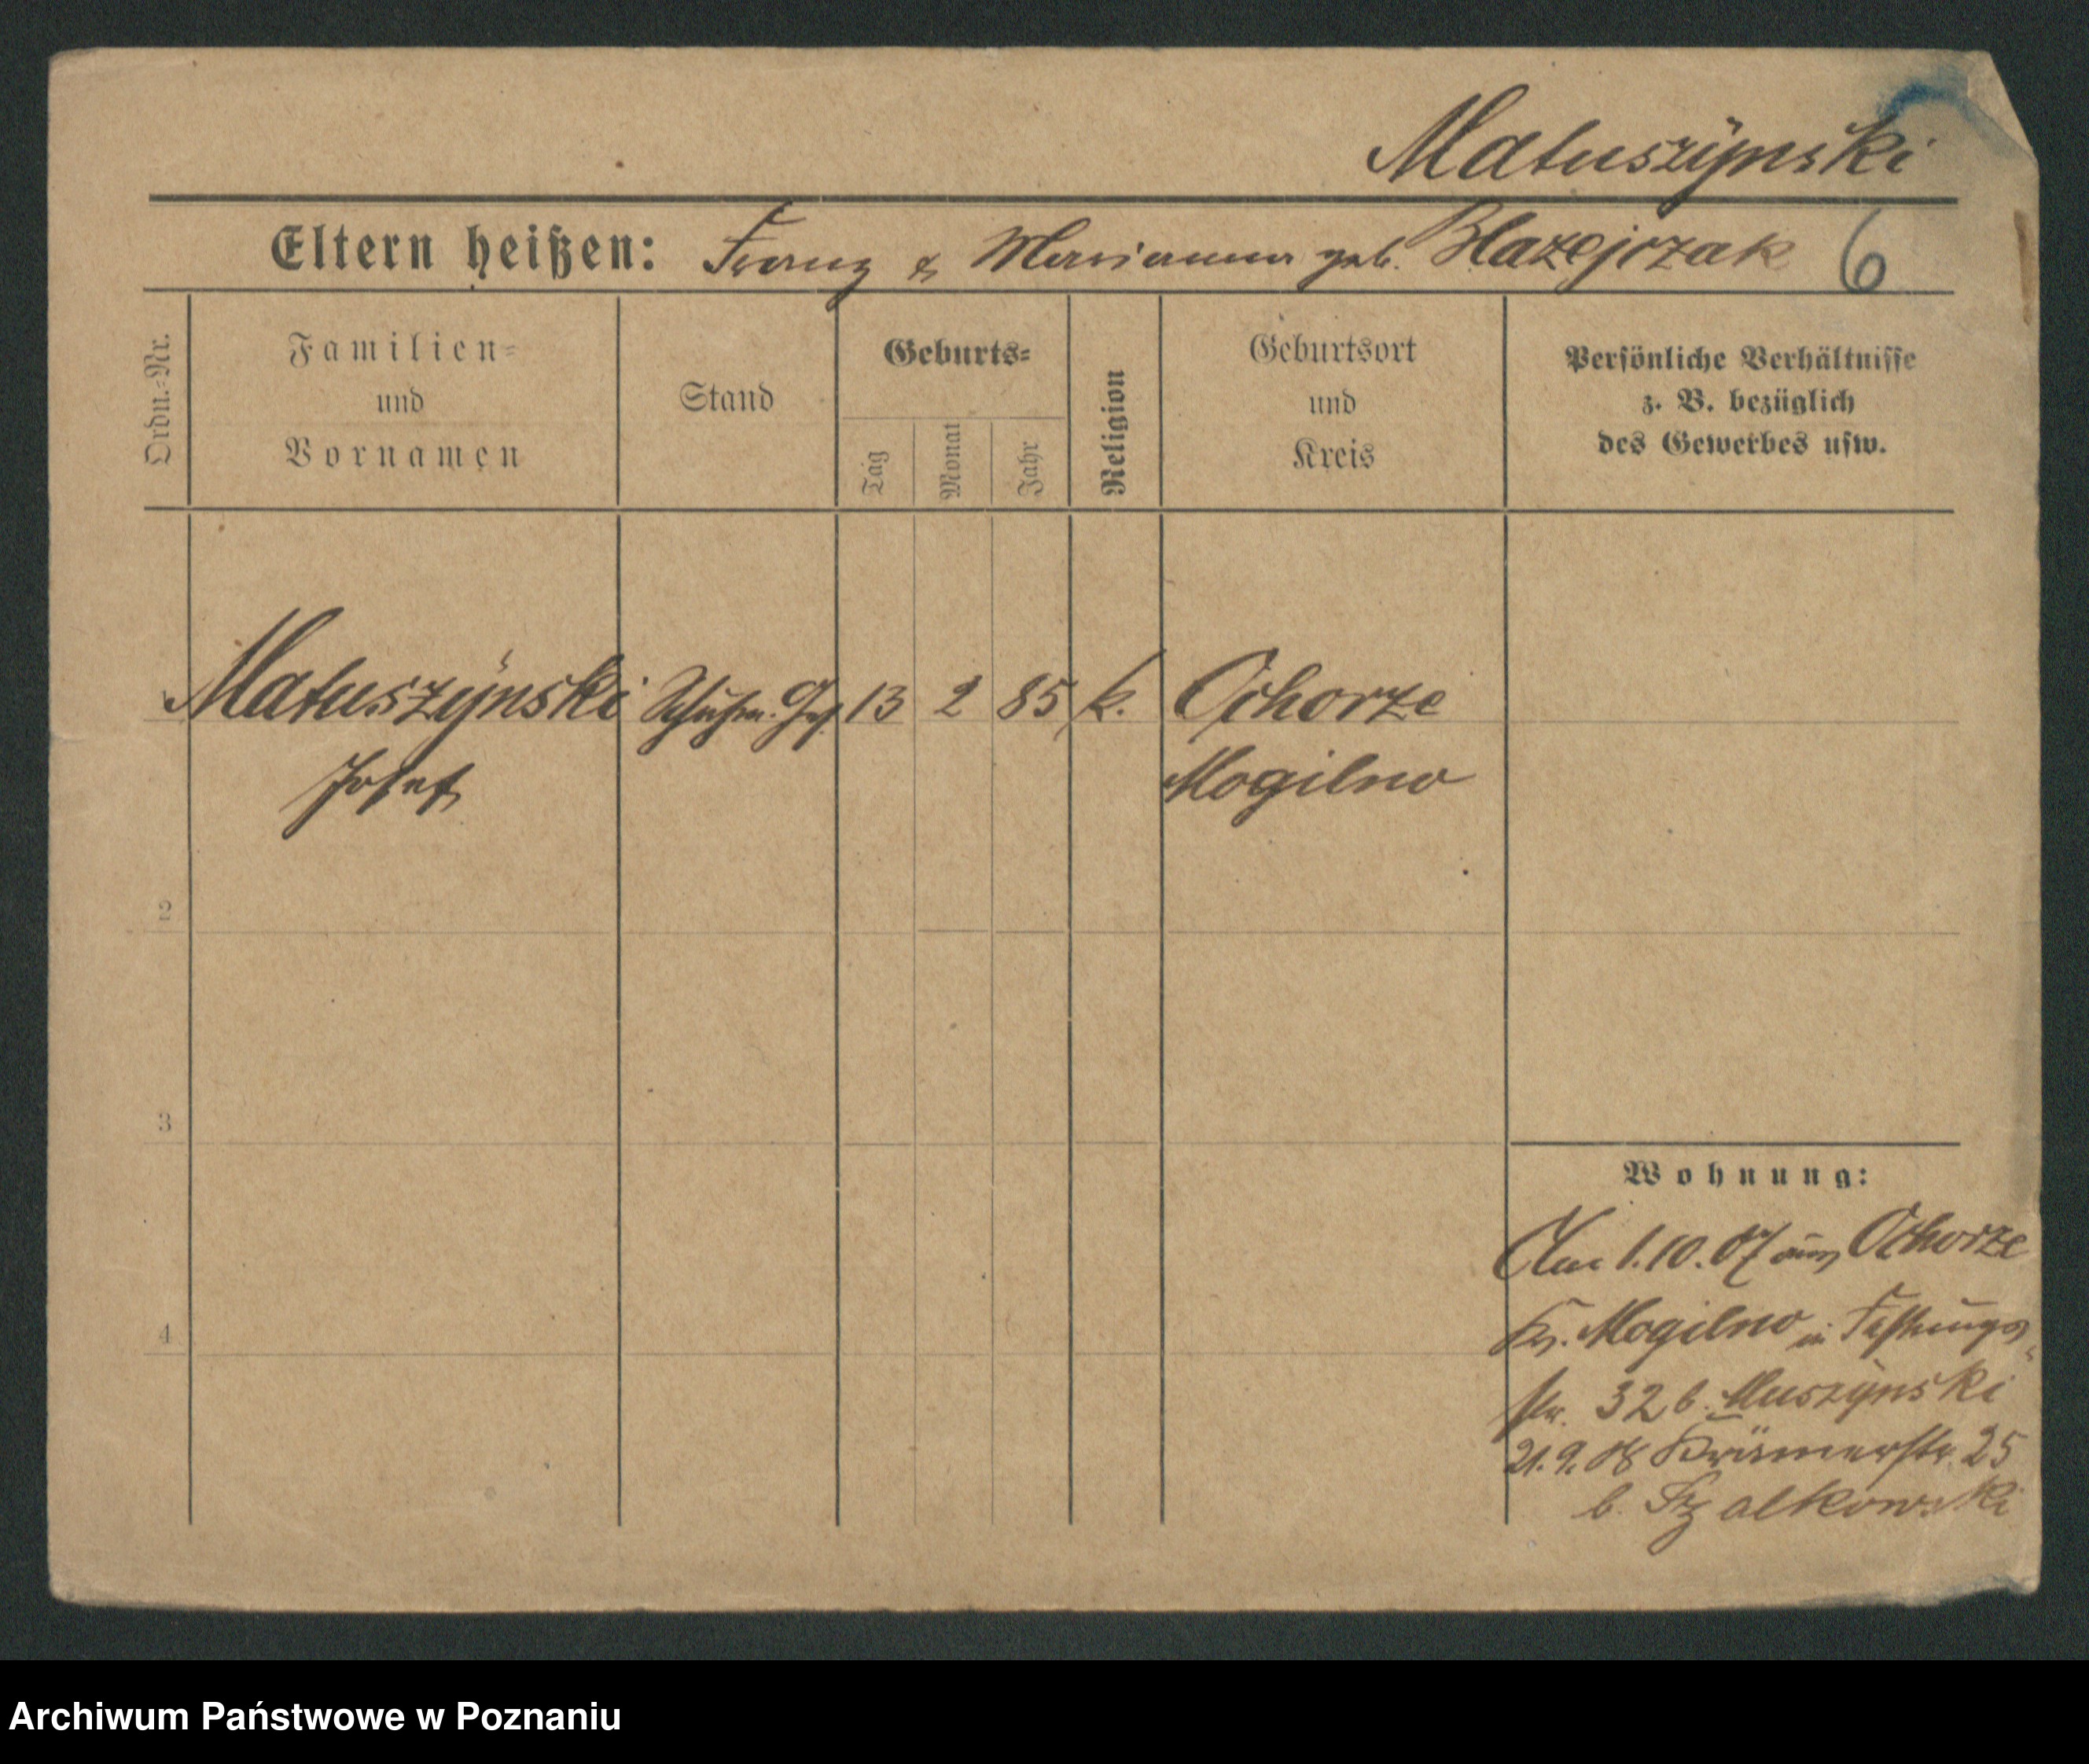 Matuszÿnski
Eltern heißen: Franz & Marianna geb. Blazejczak 6
Ordn.-Nr.
Familien-
und
Vornamen
Stand
Geburts-
Tag
Monat
Jahr
Religion
Geburtsort
und
Kreis
Persönliche Verhältnisse
z. B. bezüglich
des Gewerbes usw.
Matuszÿnski Schuhm. Ges. 13 2 85 k. Ochorze
Josef Mogilno
2
3
4
Wohnung:
Am 1.10.07 aus Ochorze
Kr. Mogilno in Festungs
str. 32 b. Muszÿnski
21.9.08 Krämerstr. 25
b. Szalkowski
Archiwum Państwowe w Poznaniu